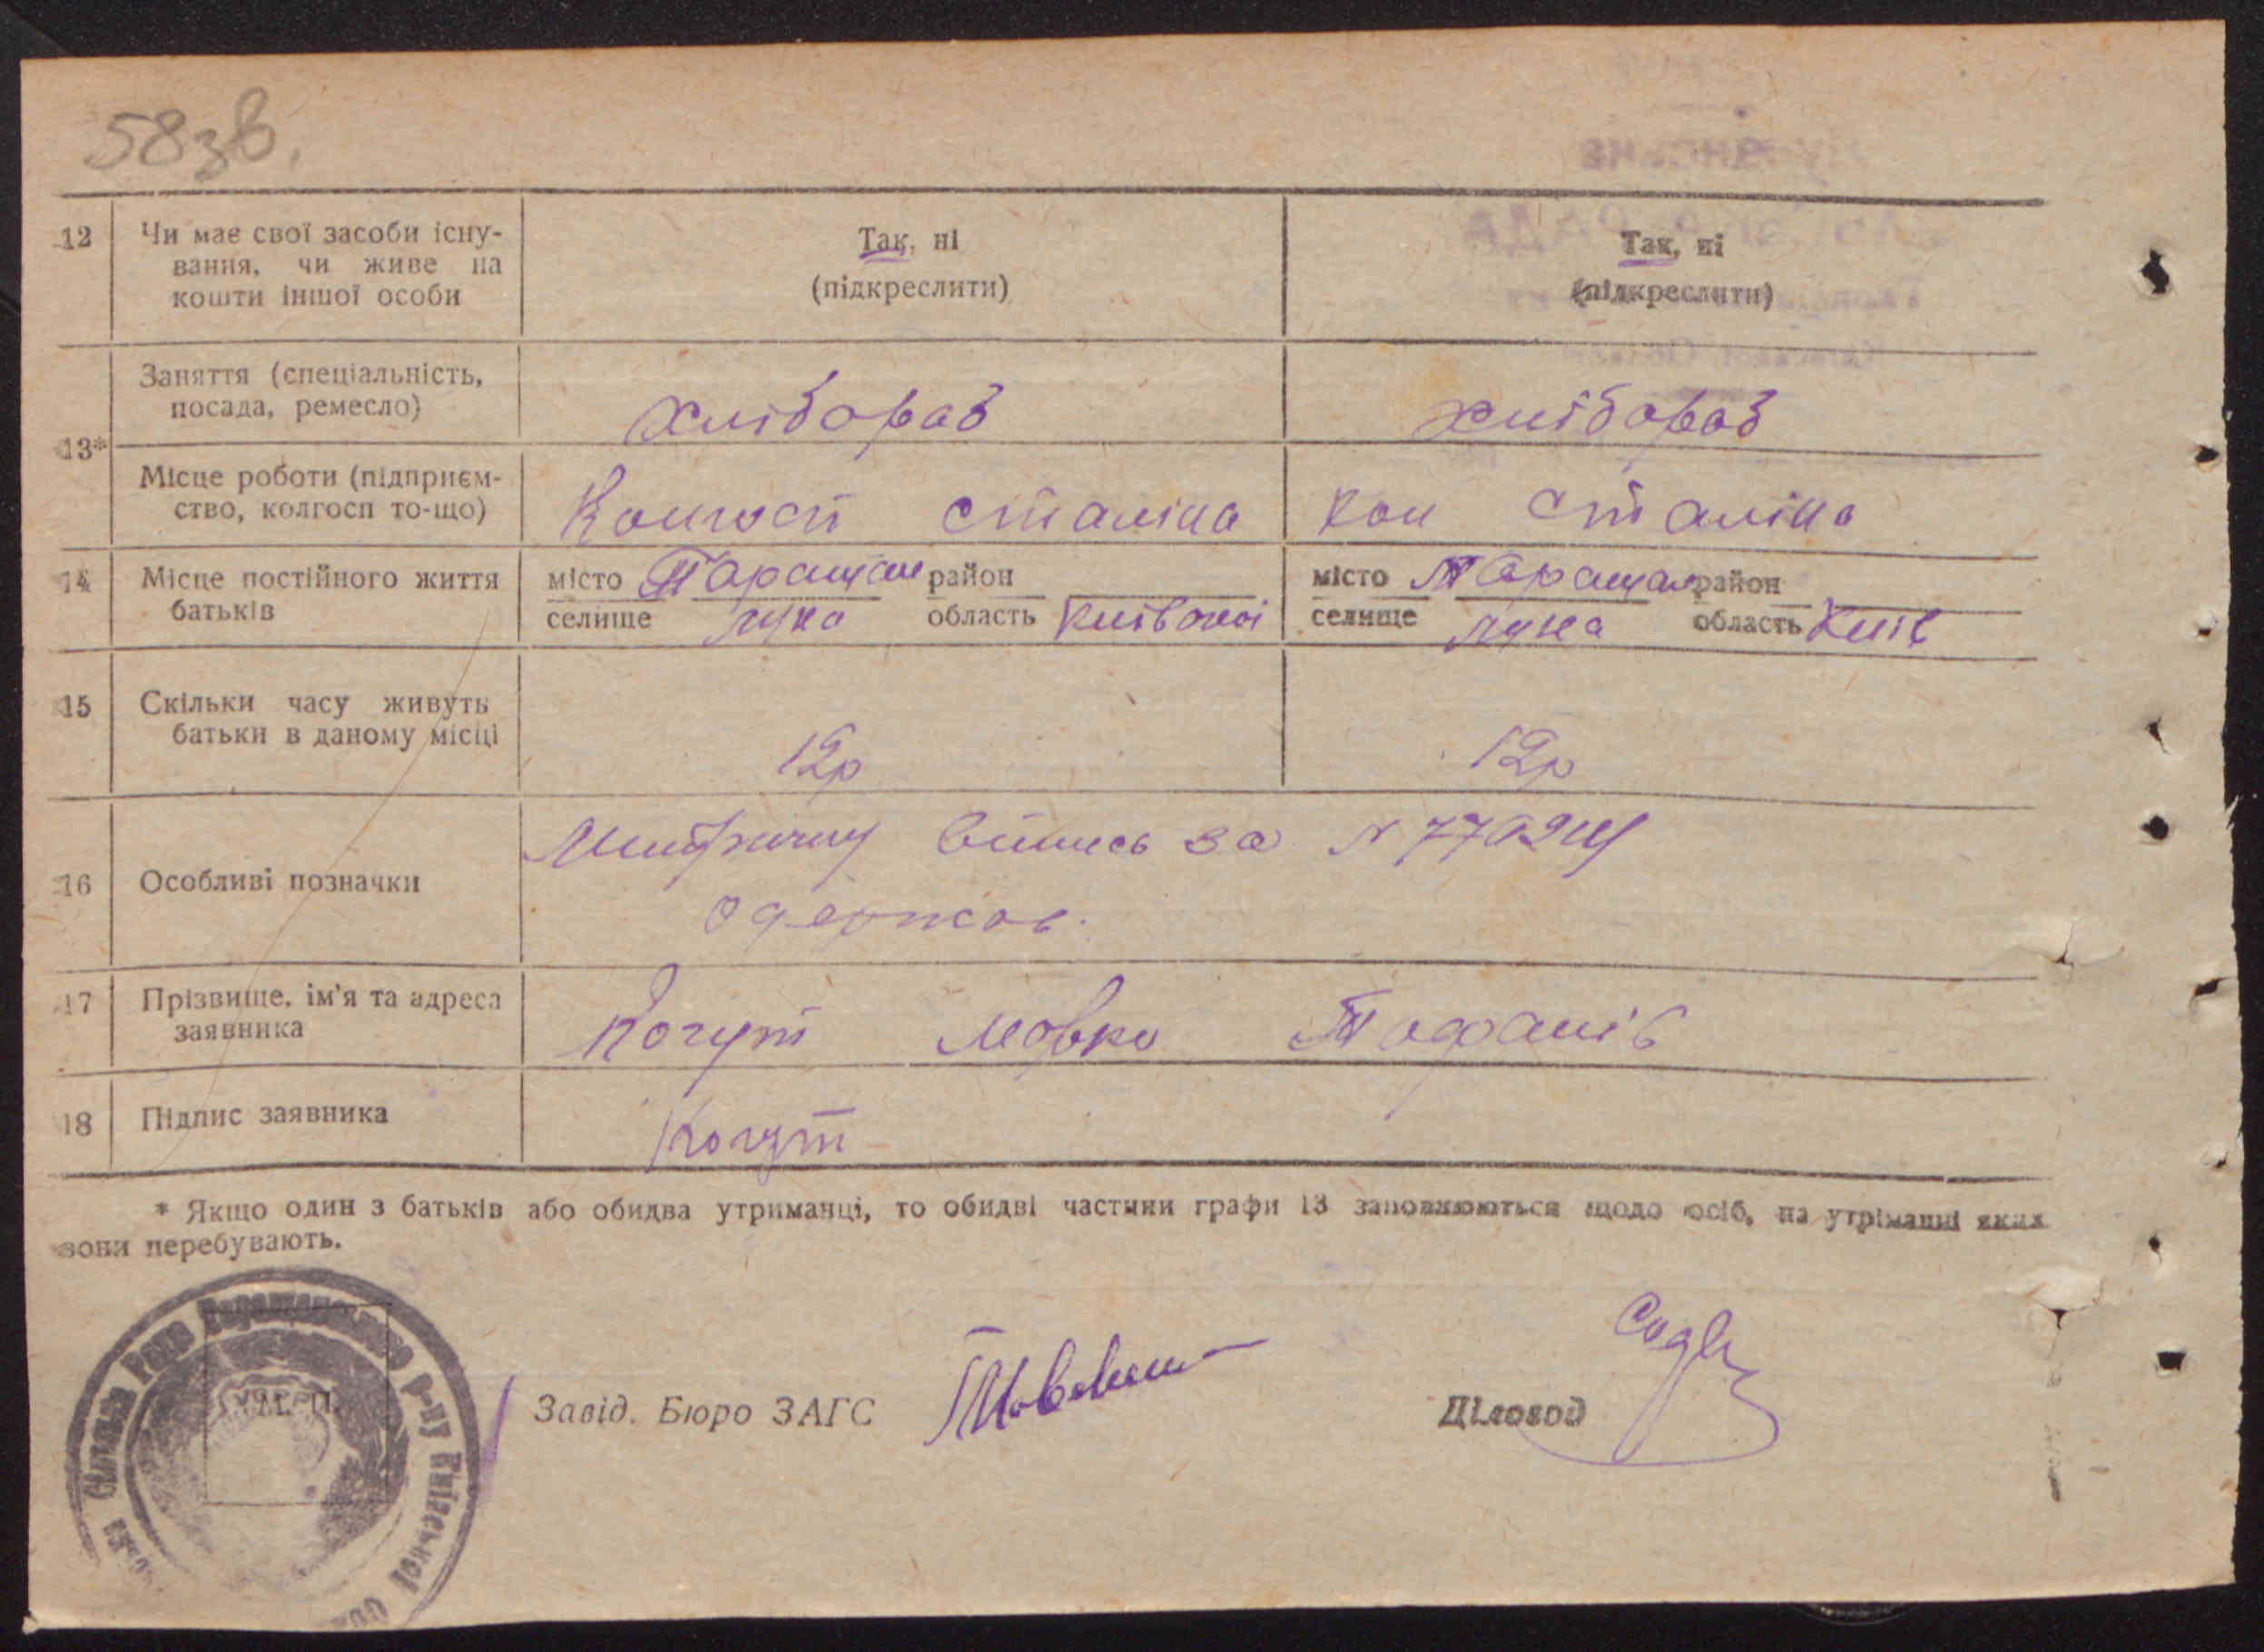 58зв.
12 Чи має свої засоби існу- Так, ні Так, ні
вання, чи живе на (підкреслити) (підкреслити)
кошти іншої особи
Заняття (спеціальність,
посада, ремесло) хлібораб хлібораб
13*
Місце роботи (підприєм-
ство, колгосп то-що) Колгосп сталіна кол сталіна
14 Місце постійного життя місто Таращан район місто Таращан район
батьків селище лука область Київської селище лука область Київ
15 Скільки часу живуть
батьки в даному місці 12р 12р
за N
16 Особливі позначки
одержав.
17 Прізвище, ім'я та адреса
заявника Когут Марко
18 Підпис заявника Когут
* Якщо один з батьків або обидва утриманці, то обидві частини графи 13 заповнюються щодо осіб, на утриманні яких
вони перебувають.
Сільська Рада Таращанського р-ну Київської Обл
Завід. Бюро ЗАГС Діловод